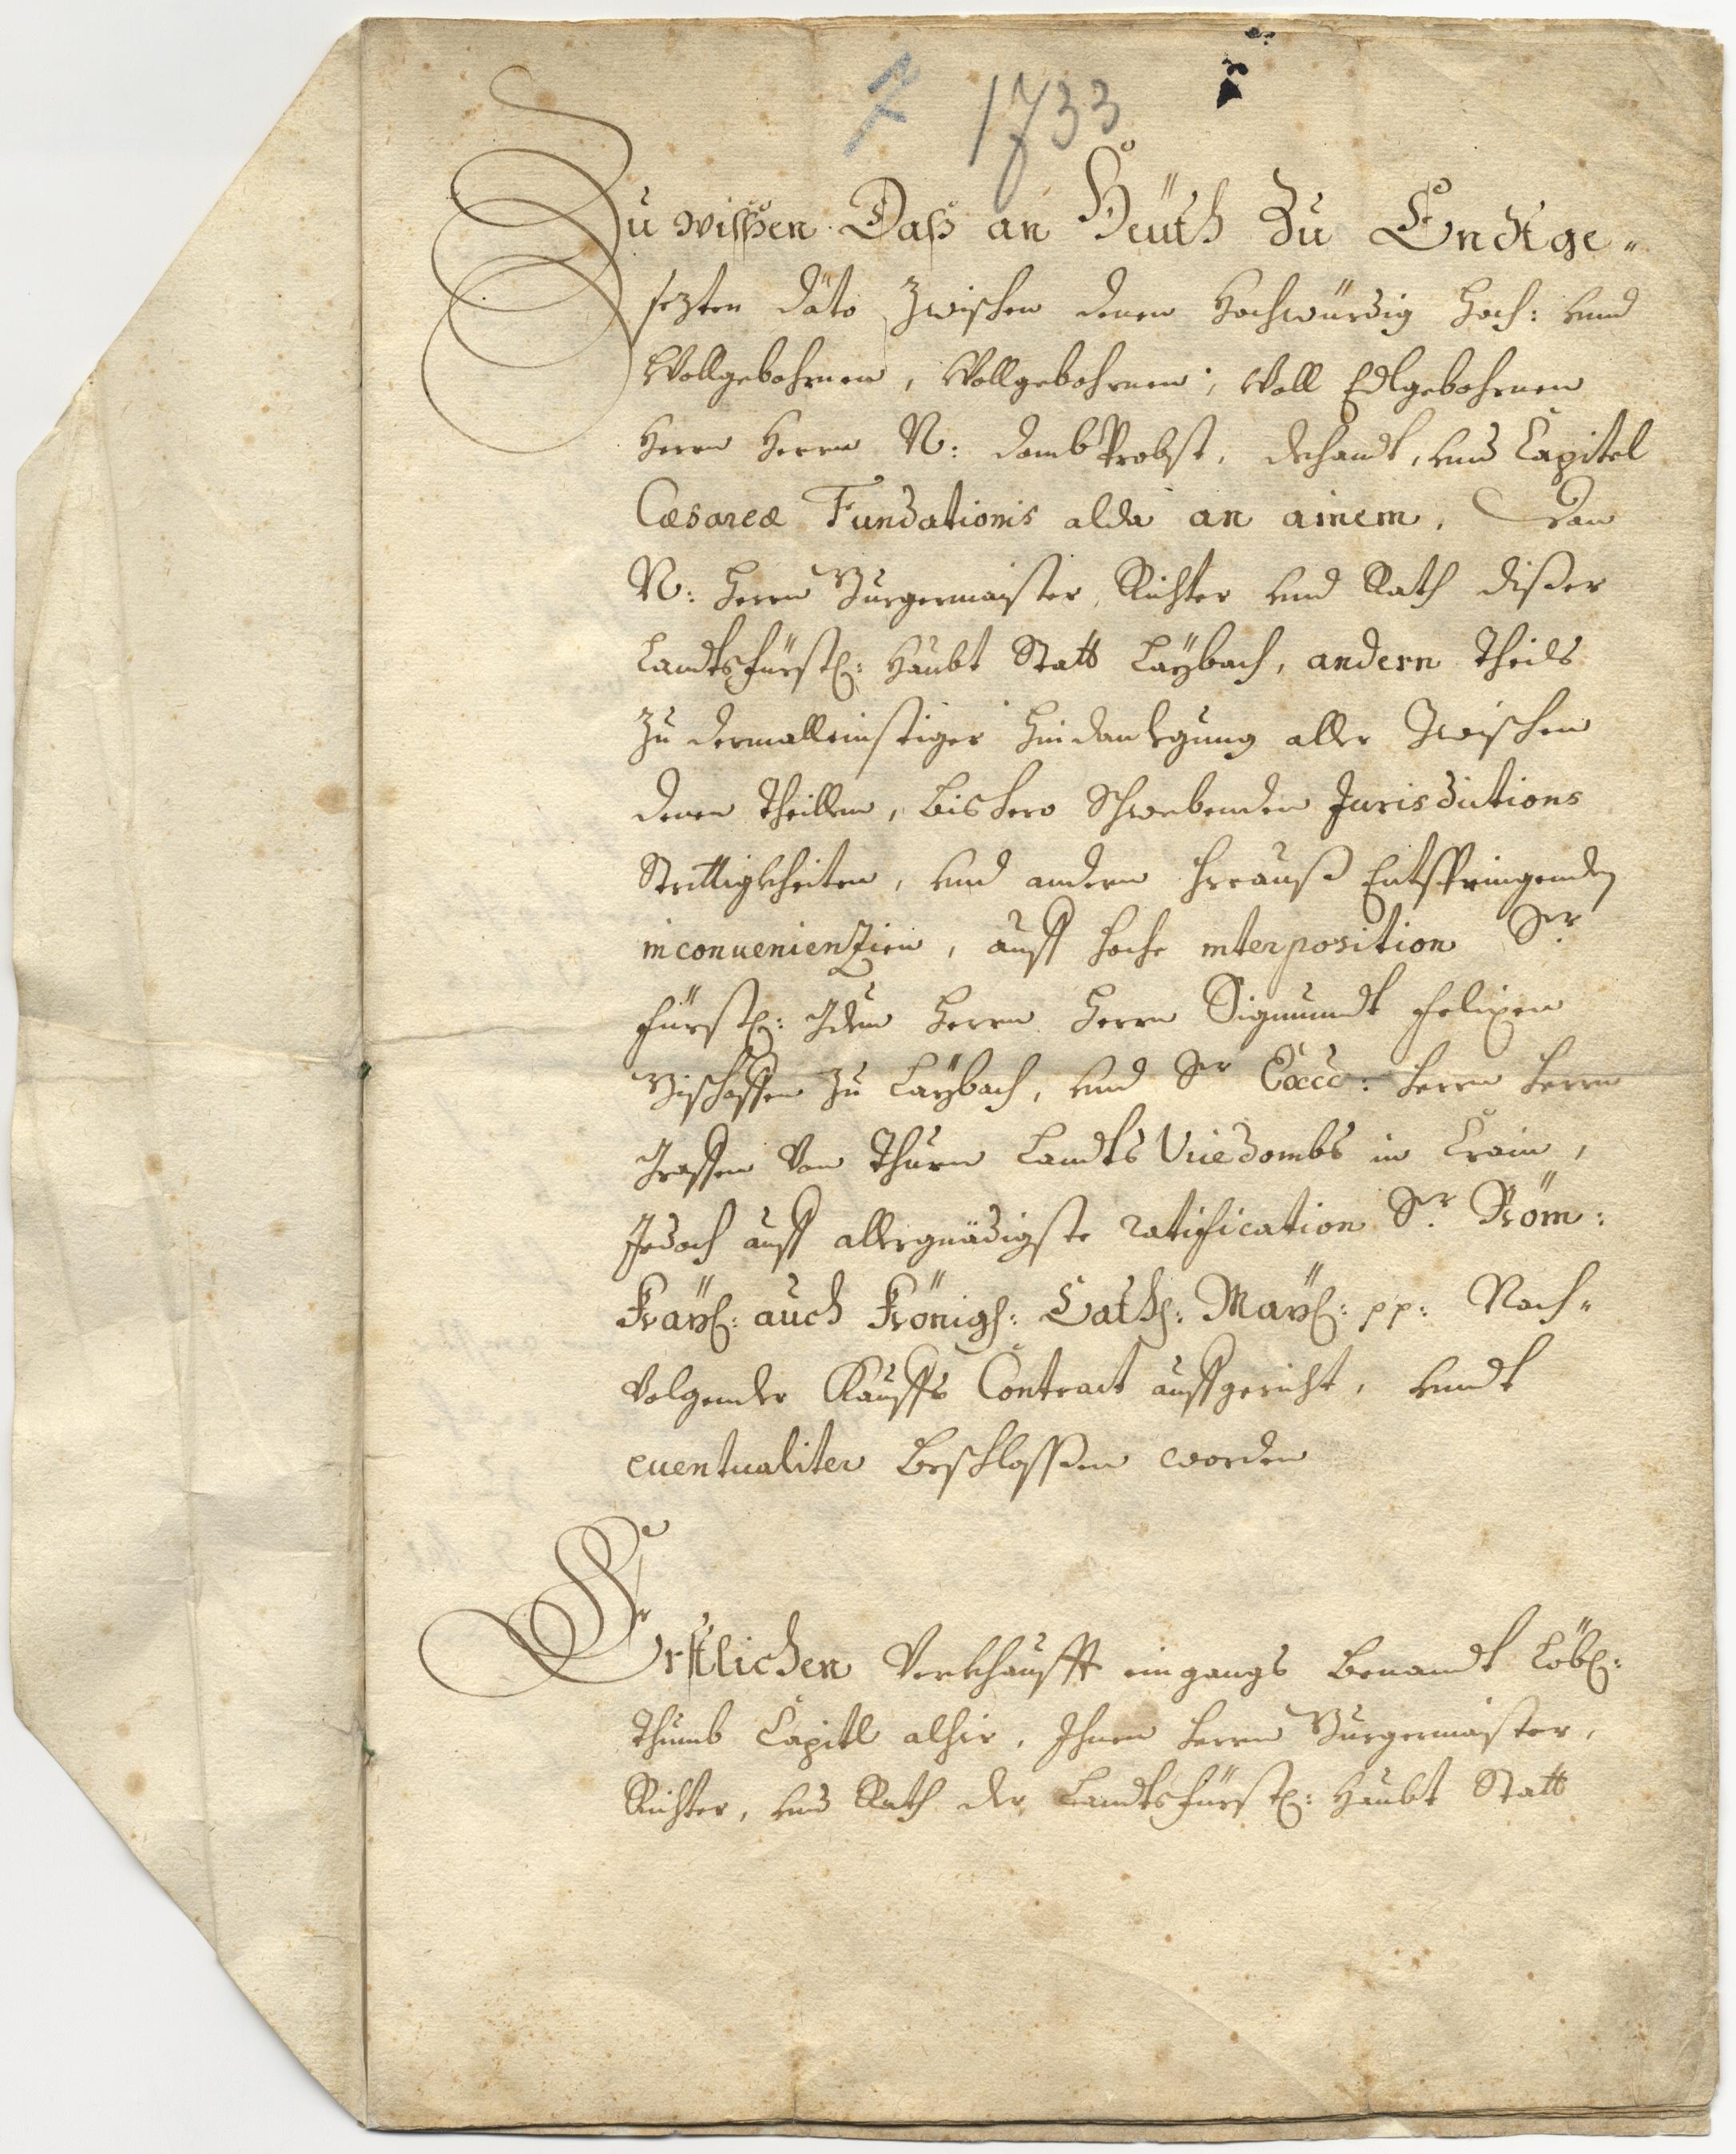 7 1733
Zu wissen Daß an Heüth Zu Endtge-
sezten dato Zwischen denen Hochwürdig Hoch: vnnd
Wollgebohrnen, Wollgebohrnen, Woll Edlgebohrnen
Herrn Herrn N: dombProbst, dechandt, vnd Capitel
Cæsareæ Fundationis alda an ainem, dan
N: Herrn Burgermaister, Richter vnnd Rath dißer
Landtsfürstl: Haubt Statt Laÿbach, andern Theils
Zu dermalleinstiger hindanlegung aller Zwischen
denen Theillen, bishero Schwebenden Jurisdictions
Strittigkheiten, vnnd andern hierauß Entspringenden
inconuenienzien, auff hoche interposition Sr
fürstl: Herrn Herrn Sigmundt Felixen
Bischoffen Zu Laÿbach, vnnd Sr Excel: Herrn Herrn
Graffen Von Thurn Landts Vicedombs in Crain,
Jedoch auff allergnädigste ratification Sr Röm:
Kaÿl: auch Königl: Cathl: Maÿl: pp: Nach-
volgender Kauffs Contract auffgericht, vnndt
euentualiter beschlossen worden
Erstlichen Verkhaufft eingangs benandt Löbl:
Thumb Capitl alhir, Ihnen Herrn Burgermaister,
Richter, vnd Rath der Landtsfürstl: Haubt Statt